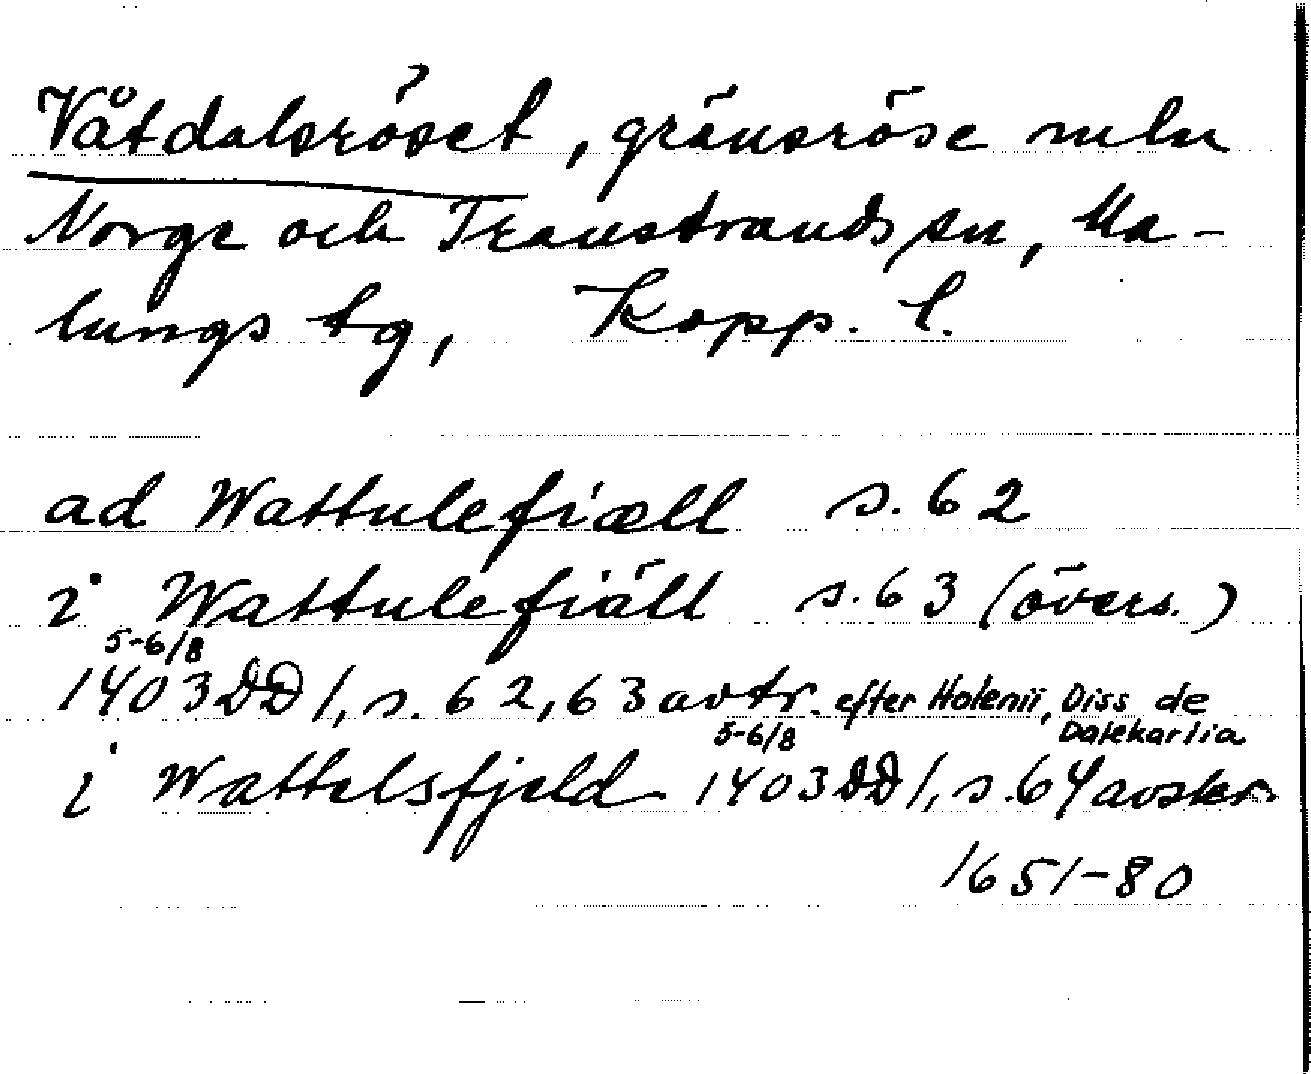 Våtdalsröset, gränsröse mln
Norge och Transtrands sn, Ma-
lungs tg, Kopp. l.
ad Wattulefiæll s. 62
i Wattulefiäll s. 63 (övers.)
5-6/8
1403 DD 1, s. 62, 63 avtr. efter Holenii, Diss de Dalekarlia
5-6/8
i Wattelsfjeld 1403 DD 1, s. 64 avskr.
1651-80